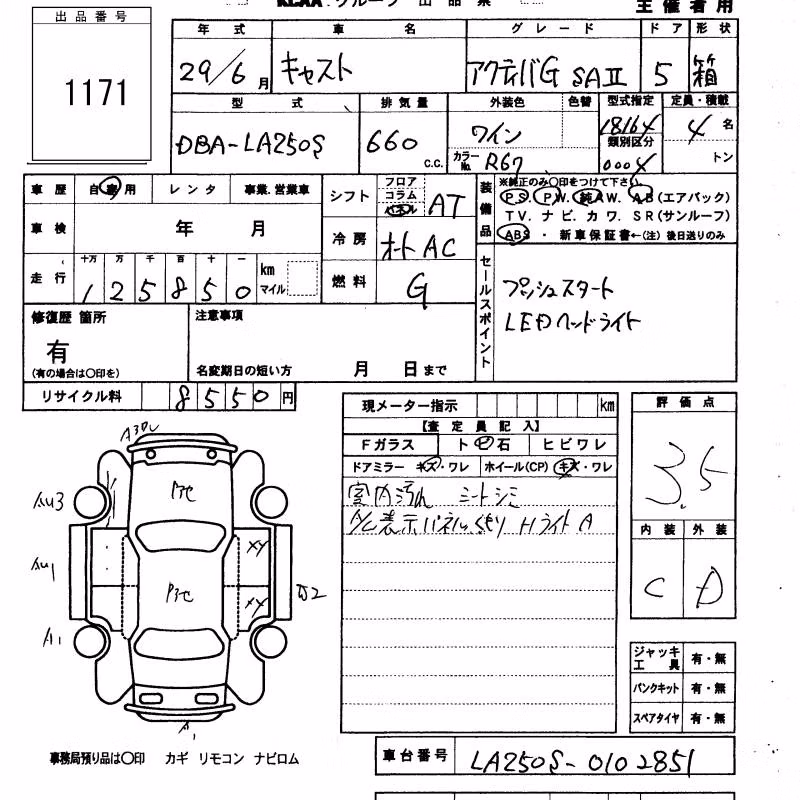 KCAA グループ 出品票 主催者用
出品番号
1171
年式 車名 グレード ドア 形状
29/6月 キャスト アクティバG SAⅡ 5 箱
型式 排気量 外装色 色替 型式指定 定員・積載
DBA-LA250S 660 c.c. ワイン 18164 4名
カラーNo. R67 類別区分 0004 トン
車歴 自家用 レンタ 事業.営業車
シフト フロア コラム パネル AT
装備品 ※純正のみ〇印をつけて下さい。
P.S. P.W. 純A.W. A.B(エアバック)
T V. ナビ. カワ. S R(サンルーフ)
ABS ・ 新車保証書←(注) 後日送りのみ
車検 年 月
冷房 オートAC
走行 十万 万 千 百 十 一 km マイル
125850
燃料 G
セールスポイント
プッシュスタート
LEDヘッドライト
修復歴 箇所
有
(有の場合は〇印を)
注意事項
名変期日の短い方 月 日まで
リサイクル料 8550円
現メーター指示 km
【査定員記入】
Fガラス ト ビ 石 ヒビワレ
ドアミラー キズ・ワレ ホイール(CP) キズ・ワレ
室内汚れ シートシミ
表示パネルくもり HライトA
評価点
3.5
内装 外装
C D
ジャッキ工具 有・無
パンクキット 有・無
スペアタイヤ 有・無
A1
A1
XY
XY
事務局預り品は〇印 カギ リモコン ナビロム
車台番号 LA250S-0102851